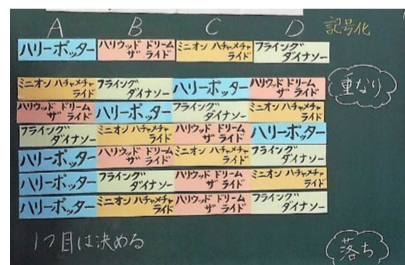 A B C D 記号化
ハリーポッター ハリウッド ドリーム ザ ライド ミニオン ハチャメチャ ライド フライング ダイナソー
ミニオン ハチャメチャ ライド フライング ダイナソー ハリーポッター ハリウッド ドリーム ザ ライド
重なり
ハリウッド ドリーム ザ ライド ハリーポッター フライング ダイナソー ミニオン ハチャメチャ ライド
フライング ダイナソー ミニオン ハチャメチャ ライド ハリウッド ドリーム ザ ライド ハリーポッター
ハリーポッター ハリウッド ドリーム ザ ライド ミニオン ハチャメチャ ライド フライング ダイナソー
ハリーポッター フライング ダイナソー ハリウッド ドリーム ザ ライド ミニオン ハチャメチャ ライド
ハリーポッター ミニオン ハチャメチャ ライド ハリウッド ドリーム ザ ライド フライング ダイナソー
1つ目は決める
落ち